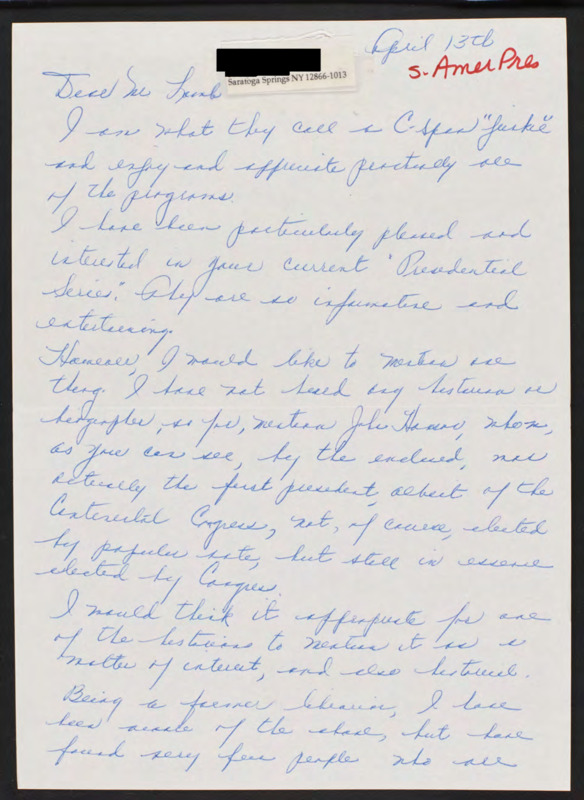 April 13th
S. Amer Pres
Saratoga Springs NY 12866-1013
Dear Mr Lamb
I am what they call a C-span "junkie"
and enjoy and appreciate practically all
of the programs.
I have been particularly pleased and
interested in your current "Presidential
Series". They are so informative and
entertaining.
However, I would like to mention one
thing. I have not heard any historian or
biographer, so far, mention John Hanson, whom,
as you can see, by the enclosed, was
actually the first president, albeit of the
Continental Congress, not, of course, elected
by popular vote, but still in essence
elected by Congress.
I would think it appropriate for one
of the historians to mention it as a
matter of interest, and also historical.
Being a former librarian, I have
been aware of the above, but have
found very few people who are